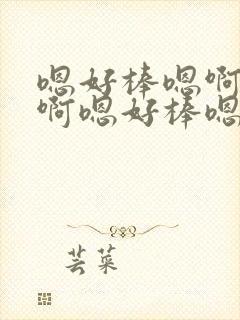 嗯好棒嗯啊
啊嗯好棒嗯
芸菜